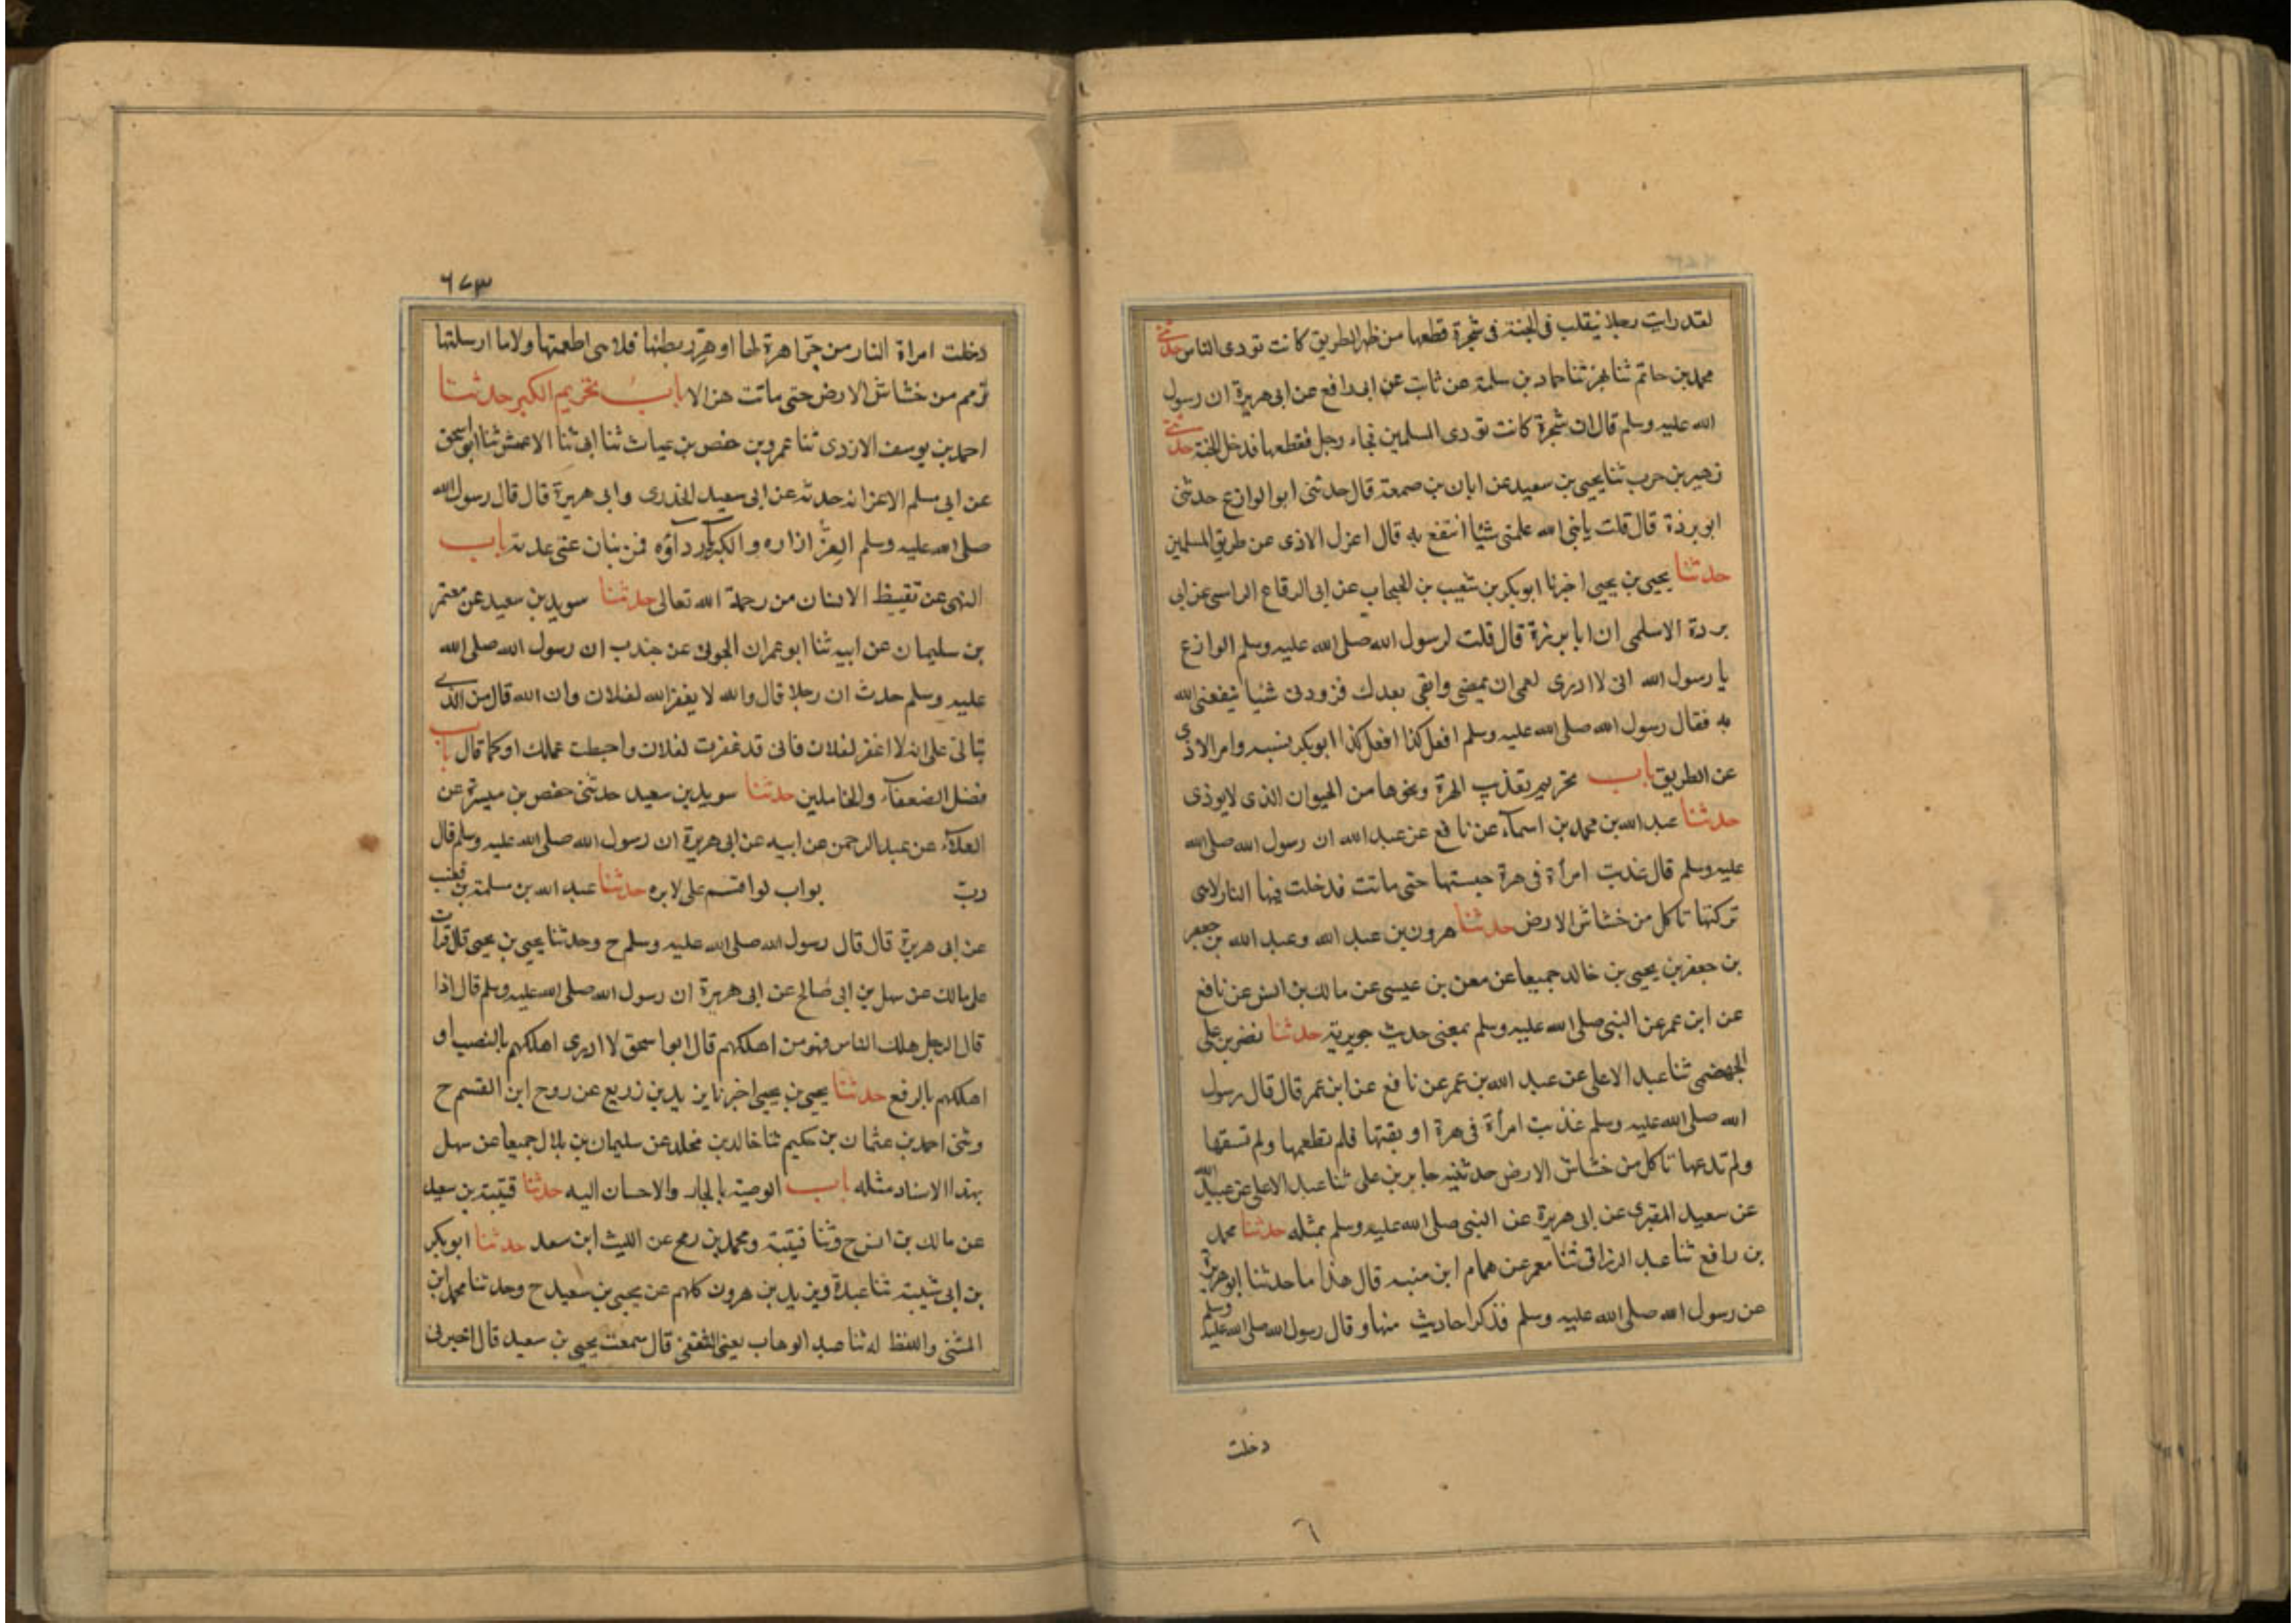 لقد رايت رجلا يتقلب فى الجنة فى شجرة قطعها من ظهر الطريق كانت تودى الناس حدثنى
محمد بن حاتم ثنا بهز ثنا حماد بن سلمة عن ثابت عن ابى رافع عن ابى هريرة ان رسول
الله عليه وسلم قال ان شجرة كانت تودى المسلمين فجاء رجل فقطعها فدخل الجنة حدثنى
زهير بن حرب ثنا يحيى بن سعيد عن ابان بن صمعة قال حدثنى ابو الوازع حدثنى
ابو برذة قال قلت يا نبى الله علمنى شيئا انتفع به قال اعزل الاذى عن طريق المسلمين
حدثنا يحيى بن يحيى اخبرنا ابو بكر بن شعيب بن الحبحاب عن ابى الرقاع الراسبى عن ابى
بردة الاسلمى ان ابا برزة قال قلت لرسول الله صلى الله عليه وسلم الوازع
يا رسول الله انى لا ادرى لعمى ان تمضى وابقى بعدك فزودنى شيئا ينفعنى الله
به فقال رسول الله صلى الله عليه وسلم افعل كذا افعل كذا ابو بكر نسيه وامر الاذى
عن الطريق باب تحريم تعذيب الهرة ونحوها من الحيوان الذى لا يوذى
حدثنا عبد الله بن محمد بن اسمآء عن نافع عن عبد الله ان رسول الله صلى الله
عليه وسلم قال عذبت امرأة فى هرة حبستها حتى ماتت فدخلت فيها النار لا هى
تركتها تاكل من خشاش الارض حدثنا هرون بن عبد الله وعبد الله بن جعفر
بن جعفر بن يحيى بن خالد جميعا عن معن بن عيسى عن مالك بن انس عن نافع
عن ابن عمر عن النبى صلى الله عليه وسلم بمعنى حديث جويرية حدثنا نضر بن على
الجهضمى ثنا عبد الاعلى عن عبد الله بن عمر عن نافع عن ابن عمر قال قال رسول
الله صلى الله عليه وسلم عذبت امرأة فى هرة اوبقتها فلم تطعمها ولم تسقها
ولم تدعها تاكل من خشاش الارض حدثنيه جابر بن على ثنا عبد الاعلى عن عبيد الله
عن سعيد المقبرى عن ابى هريرة عن النبى صلى الله عليه وسلم بمثله حدثنا محمد
بن رافع ثنا عبد الرزاق ثنا معمر عن همام ابن منبه قال هذا ما حدثنا ابو هريرة
عن رسول الله صلى الله عليه وسلم فذكر احاديث منها وقال رسول الله صلى الله عليه وسلم
دخلت
٦
٦٧٣
دخلت امراة النار من جرا هرة لها او هر ربطتها فلا هى اطعمتها ولا ما ارسلتها
ترمم من خشاش الارض حتى ماتت هزلا باب تحريم الكبر حدثنا
احمد بن يوسف الازدى ثنا عمرو بن حفص بن غياث ثنا ابى ثنا الاعمش ثنا ابو اسحق
عن ابى مسلم الاغر انه حدثه عن ابى سعيد الخدرى وابى هريرة قال قال رسول الله
صلى الله عليه وسلم العز ازاره والكبريآء ردآؤه فمن ينازعنى عذبته باب
النهى عن تقنيط الانسان من رحمة الله تعالى حدثنا سويد بن سعيد عن معتمر
بن سليمان عن ابيه ثنا ابو عمران الجونى عن جندب ان رسول الله صلى الله
عليه وسلم حدث ان رجلا قال والله لا يغفر الله لفلان وان الله قال من الذى
يتالى على ان لا اغفر لفلان فانى قد غفرت لفلان واحبطت عملك او كما قال باب
فضل الضعفآء والخاملين حدثنا سويد بن سعيد حدثنى حفص بن ميسرة عن
العلآء عن عبد الرحمن عن ابيه عن ابى هريرة ان رسول الله صلى الله عليه وسلم قال
رب بواب لو اقسم على لابره حدثنا عبد الله بن مسلمة بن قعنب
عن ابى هريرة قال قال رسول الله صلى الله عليه وسلم ح وحدثنا يحيى بن يحيى قال قرات
على مالك عن سهل بن ابى صالح عن ابى هريرة ان رسول الله صلى الله عليه وسلم قال اذا
قال الرجل هلك الناس فهو من اهلكهم قال ابو اسحق لا ادرى اهلكهم بالنصب او
اهلكهم بالرفع حدثنا يحيى بن يحيى اخبرنا يزيد بن زريع عن روح ابن القسم ح
وثنى احمد بن عثمان بن حكيم ثنا خالد بن مخلد عن سليمان بن بلال جميعا عن سهل
بهذا الاسناد مثله باب الوصية بالجار والاحسان اليه حدثنا قتيبة بن سعيد
عن مالك بن انس ح وثنا قتيبة ومحمد بن رمح عن الليث ابن سعد حدثنا ابو بكر
بن ابى شيبة ثنا عبدة ويزيد بن هرون كلهم عن يحيى بن سعيد ح وحدثنا محمد ابن
المثنى واللفظ له ثنا عبد الوهاب يعنى الثقفى قال سمعت يحيى بن سعيد قال اخبرنى